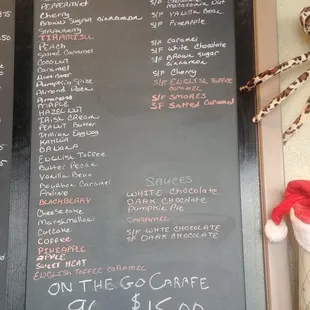 Peppermint
Cherry
Brown Sugar Cinnamon
Strawberry
TIRAMISU
Peach
Salted Caramel
Coconut
Caramel
Pumpkin Spice
Almond Roca
Amaretto
MAPLE
HAZELNUT
IRISH CREAM
PEANUT BUTTER
Italian Eggnog
KAHLUA
BANANA
ENGLISH TOFFEE
Butter Pecan
Vanilla Bean
Bourbon Caramel
Praline
BLACKBERRY
Cheesecake
Marshmallow
Cupcake
COFFEE
PINEAPPLE
APPLE
SWEET HEAT
ENGLISH TOFFEE CARAMEL
Macadamia Nut
S/F Vanilla Bean
S/F Pineapple
S/F Caramel
S/F White Chocolate
S/F Brown Sugar
Cinnamon
S/F Cherry
S/F ENGLISH TOFFEE
CARAMEL
S/F SMORES
SF Salted Caramel
SAUCES
WHITE Chocolate
DARK Chocolate
Pumpkin Pie
CARAMEL
S/F WHITE CHOCOLATE
SF DARK CHOCOLATE
ON THE GO CARAFE
96 $15.00